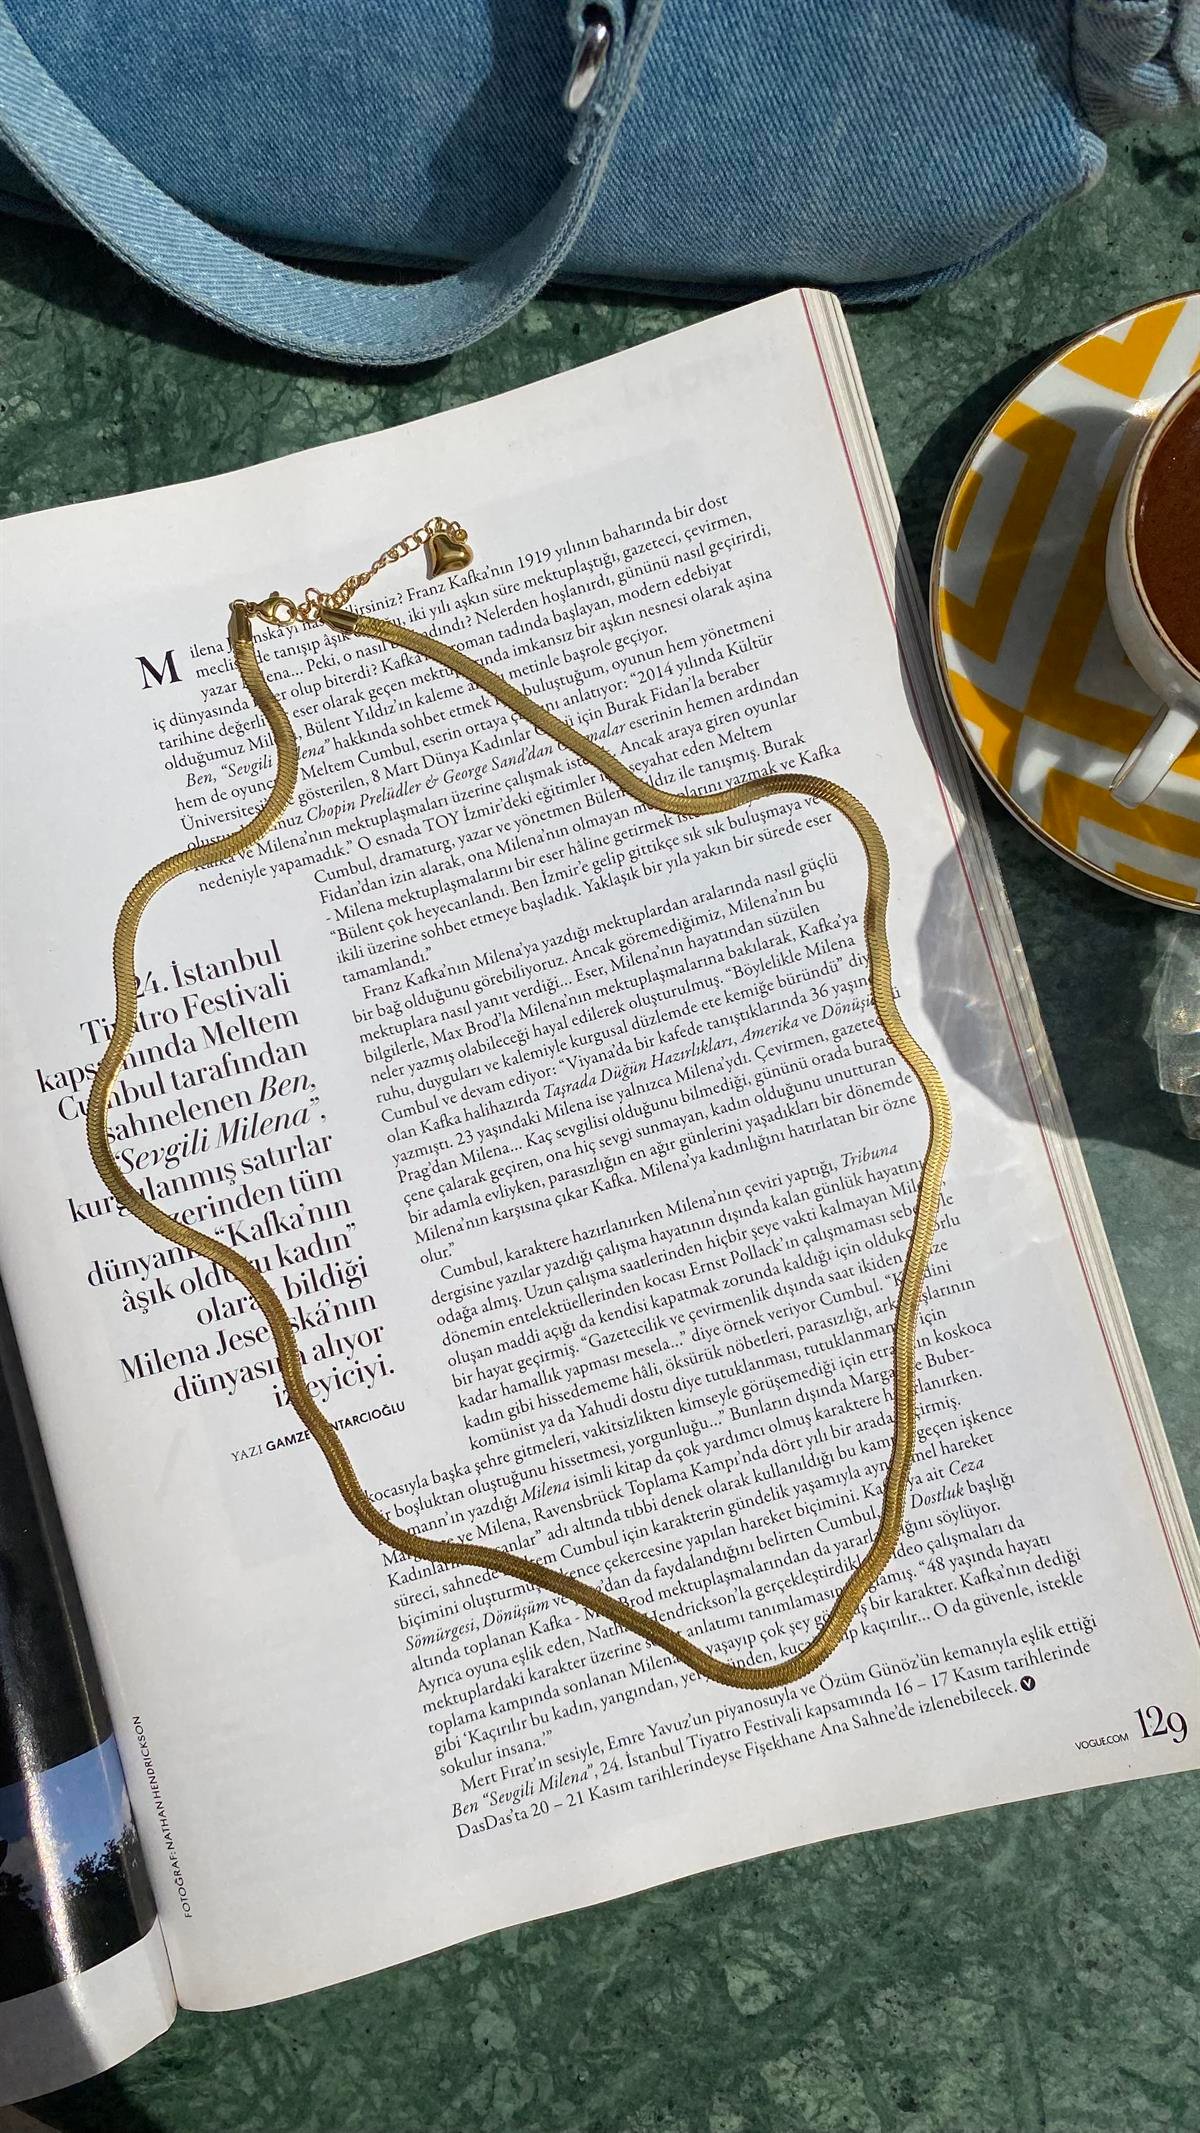 Milena J nska'yı na ilirsiniz? Franz Kafka'nın 1919 yılının baharında bir dost
mecli de tanışıp âşık u, iki yılı aşkın süre mektuplaştığı, gazeteci, çevirmen,
yazar ena... Peki, o nasıl adındı? Nelerden hoşlanırdı, gününü nasıl geçirirdi,
iç dünyasında er olup biterdi? Kafka' roman tadında başlayan, modern edebiyat
tarihine değerli eser olarak geçen mektup ında imkansız bir aşkın nesnesi olarak aşina
olduğumuz Mil , Bülent Yıldız'ın kaleme a metinle başrole geçiyor.
Ben, "Sevgili ena" hakkında sohbet etmek buluştuğum, oyunun hem yönetmeni
hem de oyunc Meltem Cumbul, eserin ortaya ç nı anlatıyor: "2014 yılında Kültür
Üniversitesi gösterilen, 8 Mart Dünya Kadınlar ü için Burak Fidan'la beraber
oluştur muz Chopin Prelüdler & George Sand'dan malar eserinin hemen ardından
Kafka ve Milena'nın mektuplaşmaları üzerine çalışmak iste . Ancak araya giren oyunlar
nedeniyle yapamadık." O esnada TOY İzmir'deki eğitimler i seyahat eden Meltem
Cumbul, dramaturg, yazar ve yönetmen Bülen ldız ile tanışmış. Burak
Fidan'dan izin alarak, ona Milena'nın olmayan m larını yazmak ve Kafka
- Milena mektuplaşmalarını bir eser hâline getirmek iste
"Bülent çok heyecanlandı. Ben İzmir'e gelip gittikçe sık sık buluşmaya ve
ikili üzerine sohbet etmeye başladık. Yaklaşık bir yıla yakın bir sürede eser
tamamlandı."
Franz Kafka'nın Milena'ya yazdığı mektuplardan aralarında nasıl güçlü
bir bağ olduğunu görebiliyoruz. Ancak göremediğimiz, Milena'nın bu
mektuplara nasıl yanıt verdiği... Eser, Milena'nın hayatından süzülen
bilgilerle, Max Brod'la Milena'nın mektuplaşmalarına bakılarak, Kafka'ya
neler yazmış olabileceği hayal edilerek oluşturulmuş. "Böylelikle Milena
ruhu, duyguları ve kalemiyle kurgusal düzlemde ete kemiğe büründü" diy
Cumbul ve devam ediyor: "Viyana'da bir kafede tanıştıklarında 36 yaşın
olan Kafka halihazırda Taşrada Düğün Hazırlıkları, Amerika ve Dönüşü
yazmıştı. 23 yaşındaki Milena ise yalnızca Milena'ydı. Çevirmen, gazetec
Prag'dan Milena... Kaç sevgilisi olduğunu bilmediği, gününü orada burad
çene çalarak geçiren, ona hiç sevgi sunmayan, kadın olduğunu unutturan
bir adamla evliyken, parasızlığın en ağır günlerini yaşadıkları bir dönemde
Milena'nın karşısına çıkar Kafka. Milena'ya kadınlığını hatırlatan bir özne
olur."
Cumbul, karaktere hazırlanırken Milena'nın çeviri yaptığı, Tribuna
dergisine yazılar yazdığı çalışma hayatının dışında kalan günlük hayatını
odağa almış. Uzun çalışma saatlerinden hiçbir şeye vakti kalmayan Mil
dönemin entelektüellerinden kocası Ernst Pollack'ın çalışmaması sebe yle
oluşan maddi açığı da kendisi kapatmak zorunda kaldığı için oldukç orlu
bir hayat geçirmiş. "Gazetecilik ve çevirmenlik dışında saat ikiden ize
kadar hamallık yapması mesela..." diye örnek veriyor Cumbul. "K dini
kadın gibi hissedememe hâli, öksürük nöbetleri, parasızlığı, ark şlarının
komünist ya da Yahudi dostu diye tutuklanması, tutuklanma için
kocasıyla başka şehre gitmeleri, vakitsizlikten kimseyle görüşemediği için etra n koskoca
ir boşluktan oluştuğunu hissetmesi, yorgunluğu..." Bunların dışında Marga e Buber-
mann'ın yazdığı Milena isimli kitap da çok yardımcı olmuş karaktere h rlanırken.
Marg e ve Milena, Ravensbrück Toplama Kampı'nda dört yılı bir arada çirmiş.
Kadınları sanlar" adı altında tıbbi denek olarak kullanıldığı bu kam geçen işkence
süreci, sahnede em Cumbul için karakterin gündelik yaşamıyla ayn mel hareket
biçimini oluşturmuş kence çekercesine yapılan hareket biçimini. Kaf ya ait Ceza
Sömürgesi, Dönüşüm ve 'dan da faydalandığını belirten Cumbul, Dostluk başlığı
altında toplanan Kafka - M Brod mektuplaşmalarından da yararl ğını söylüyor.
Ayrıca oyuna eşlik eden, Nath Hendrickson'la gerçekleştirdikl ideo çalışmaları da
mektuplardaki karakter üzerine s anlatımı tanımlamasın ğlamış. "48 yaşında hayatı
toplama kampında sonlanan Milena yaşayıp çok şey gö ş bir karakter. Kafka'nın dediği
gibi 'Kaçırılır bu kadın, yangından, yer ünden, kuca ıp kaçırılır... O da güvenle, istekle
sokulur insana.'"
Mert Fırat'ın sesiyle, Emre Yavuz'un piyanosuyla ve Özüm Günöz'ün kemanıyla eşlik ettiği
Ben "Sevgili Milena", 24. İstanbul Tiyatro Festivali kapsamında 16 – 17 Kasım tarihlerinde
DasDas'ta 20 – 21 Kasım tarihlerindeyse Fişekhane Ana Sahne'de izlenebilecek. V
24. İstanbul
Ti atro Festivali
kaps mında Meltem
Cu nbul tarafından
sahnelenen Ben,
"Sevgili Milena",
kurg lanmış satırlar
zerinden tüm
dünyanı "Kafka'nın
âşık olduğu kadın"
olara bildiği
Milena Jesenská'nın
dünyasına alıyor
izleyiciyi.
YAZI GAMZE NTARCIOĞLU
FOTOĞRAF: NATHAN HENDRICKSON
VOGUE.COM 129